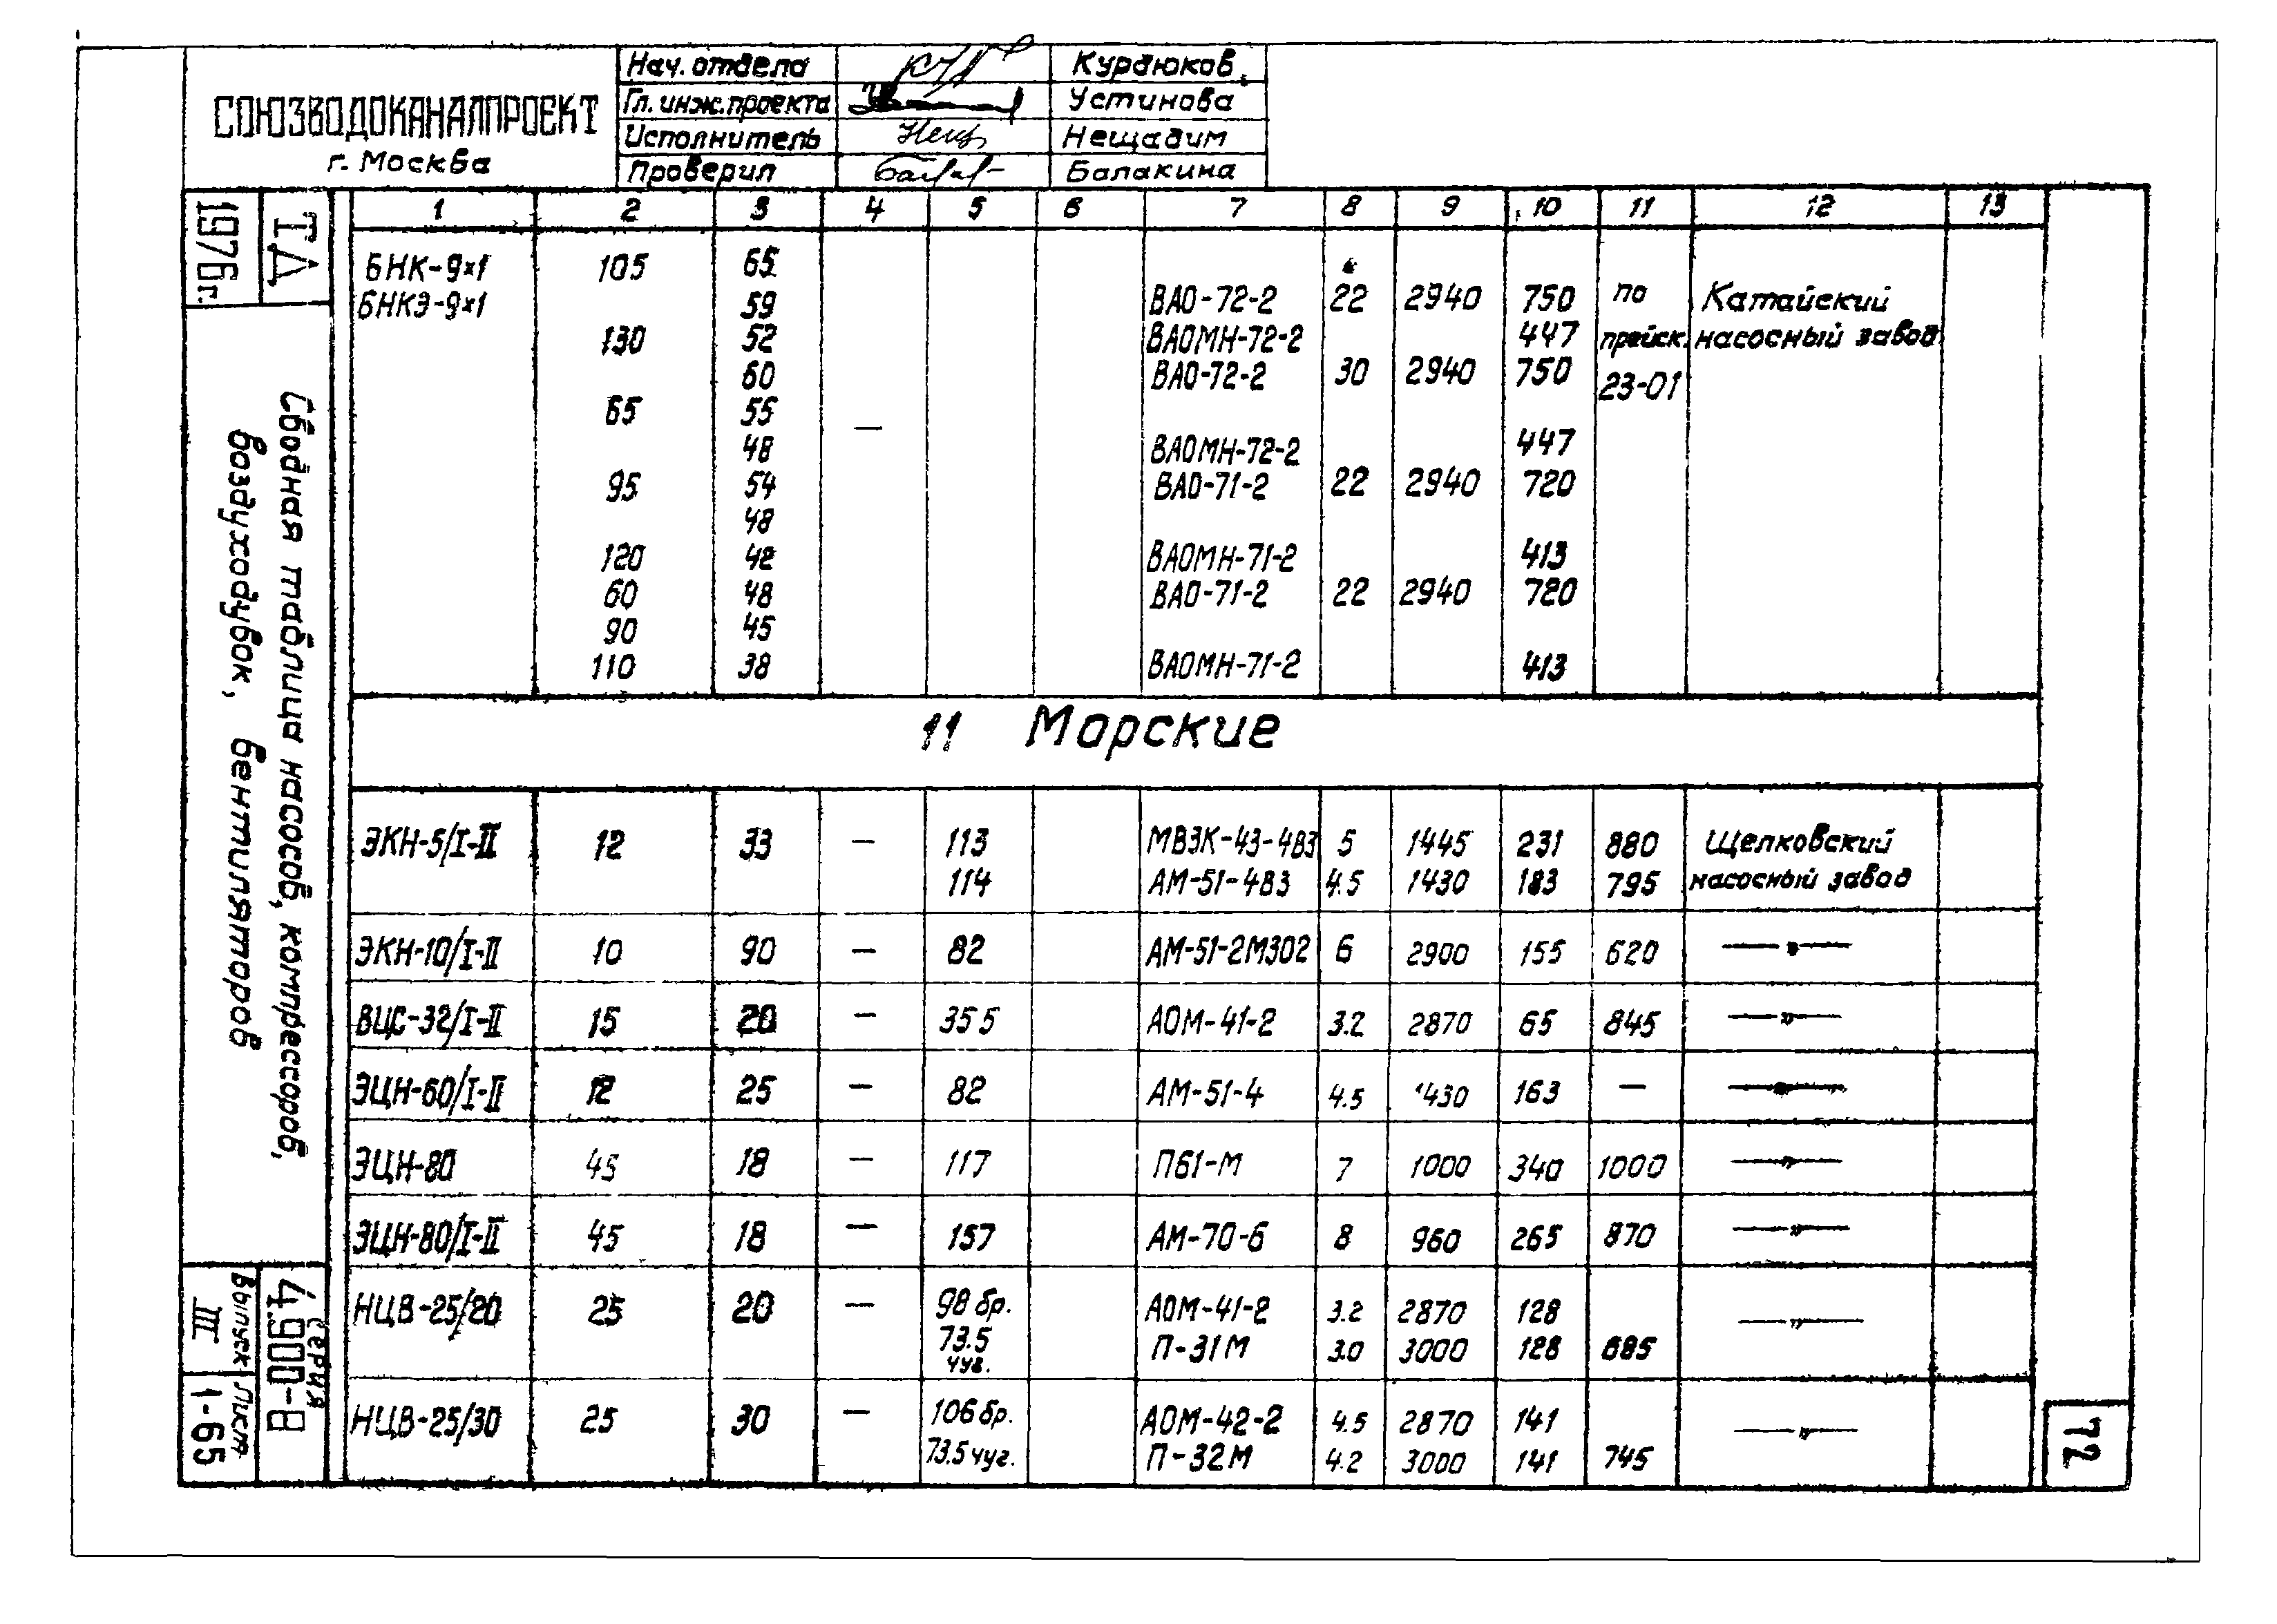 СОЮЗВОДОКАНАЛПРОЕКТ
г. Москва
Нач. отдела Курдюков
Гл. инж. проекта Устинова
Исполнитель Нещадим
Проверил Балакина
ТД
1976г.
Сводная таблица насосов, компрессоров,
воздуходувок, вентиляторов
Серия
4.900-8
Выпуск III
Лист 1-65
1 2 3 4 5 6 7 8 9 10 11 12 13
БНК-9х1 105 65
БНКЭ-9х1 59 ВАО-72-2 22 2940 750 по Катайский
130 52 ВАОМН-72-2 447 прейск. насосный завод
60 ВАО-72-2 30 2940 750 23-01
65 55 —
48 ВАОМН-72-2 447
95 54 ВАО-71-2 22 2940 720
48
120 42 ВАОМН-71-2 413
60 48 ВАО-71-2 22 2940 720
90 45
110 38 ВАОМН-71-2 413
11 Морские
ЭКН-5/I-II 12 33 — 113 МВЗК-43-4В3 5 1445 231 880 Щелковский
114 АМ-51-4В3 4.5 1430 183 795 насосный завод
ЭКН-10/I-II 10 90 — 82 АМ-51-2М302 6 2900 155 620 —"—
ВЦС-32/I-II 15 20 — 355 АОМ-41-2 3.2 2870 65 845 —"—
ЭЦН-60/I-II 12 25 — 82 АМ-51-4 4.5 1430 163 — —"—
ЭЦН-80 45 18 — 117 П61-М 7 1000 340 1000 —"—
ЭЦН-80/I-II 45 18 — 157 АМ-70-6 8 960 265 870 —"—
НЦВ-25/20 25 20 — 98 бр. АОМ-41-2 3.2 2870 128 —"—
73.5 П-31М 3.0 3000 128 685
чуг.
НЦВ-25/30 25 30 — 106 бр. АОМ-42-2 4.5 2870 141 —"—
73.5 чуг. П-32М 4.2 3000 141 745
72